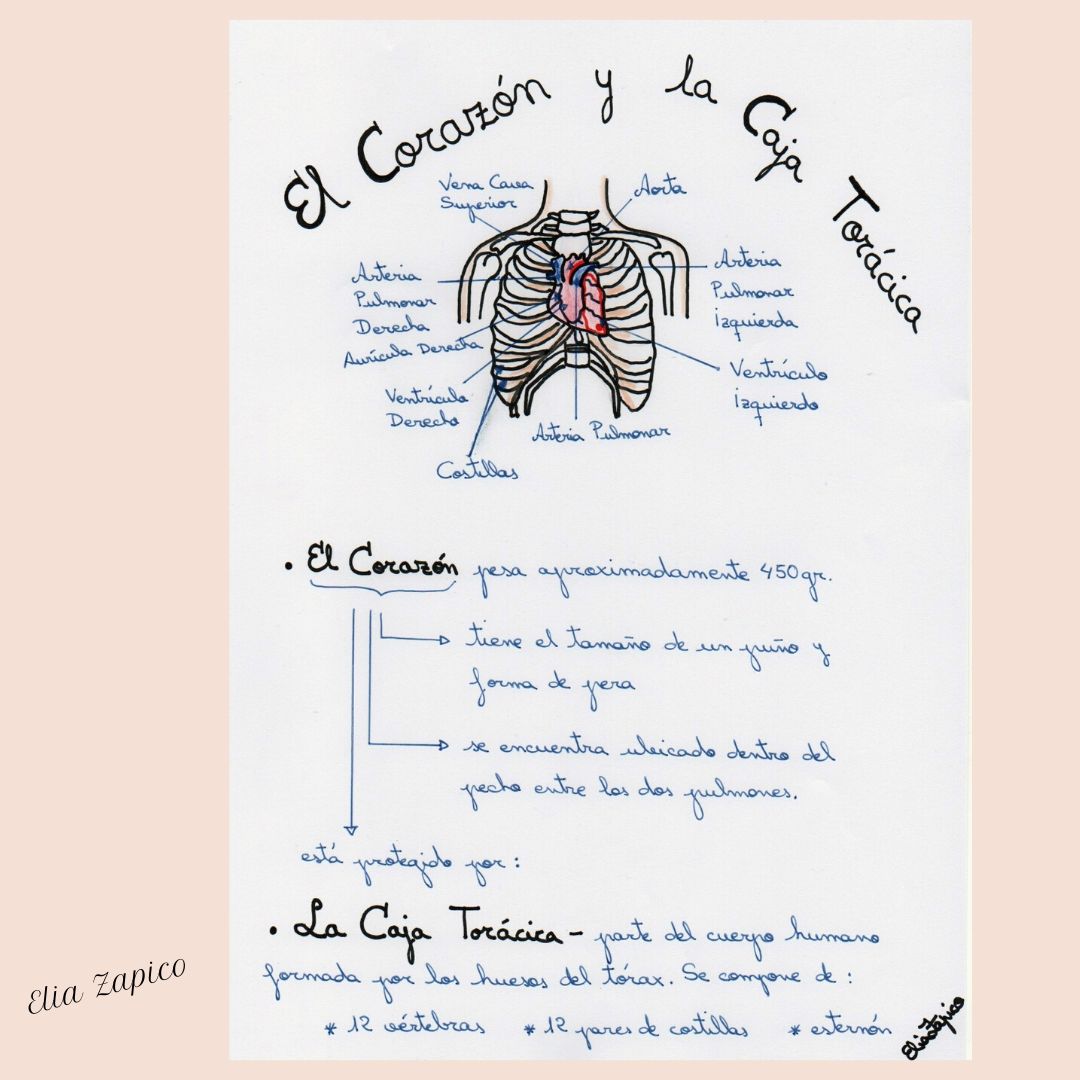 El Corazón y la Caja Torácica
Vena Cava
Superior
Aorta
Arteria
Pulmonar
Derecha
Arteria
Pulmonar
Izquierda
Aurícula Derecha
Ventrículo
Derecho
Ventrículo
izquierdo
Arteria Pulmonar
Costillas
• El Corazón pesa aproximadamente 450gr.
tiene el tamaño de un puño y
forma de pera
se encuentra ubicado dentro del
pecho entre los dos pulmones.
está protegido por:
• La Caja Torácica - parte del cuerpo humano
formada por los huesos del tórax. Se compone de:
* 12 vértebras * 12 pares de costillas * esternón
Elia Zapico
Elia Zapico